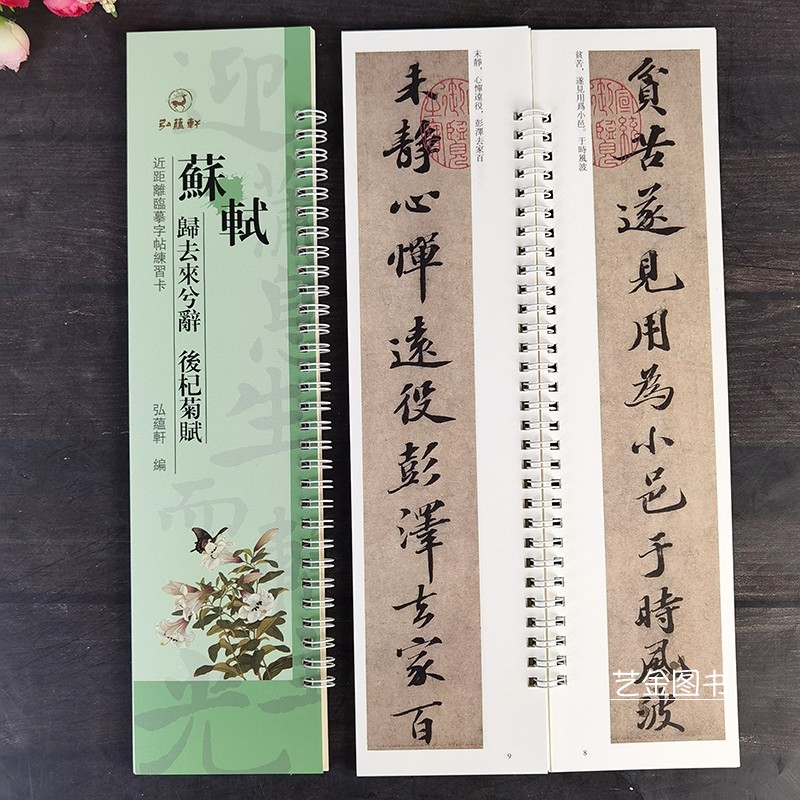 弘蘊軒
蘇軾
歸去來兮辭 後杞菊賦
近距離臨摹字帖練習卡
弘蘊軒 編
貧苦遂見用為小邑于時風波
貧苦，遂見用爲小邑。于時風波
8
未靜，心憚遠役，彭澤去家百
未靜心憚遠役彭澤去家百
9
艺金图书